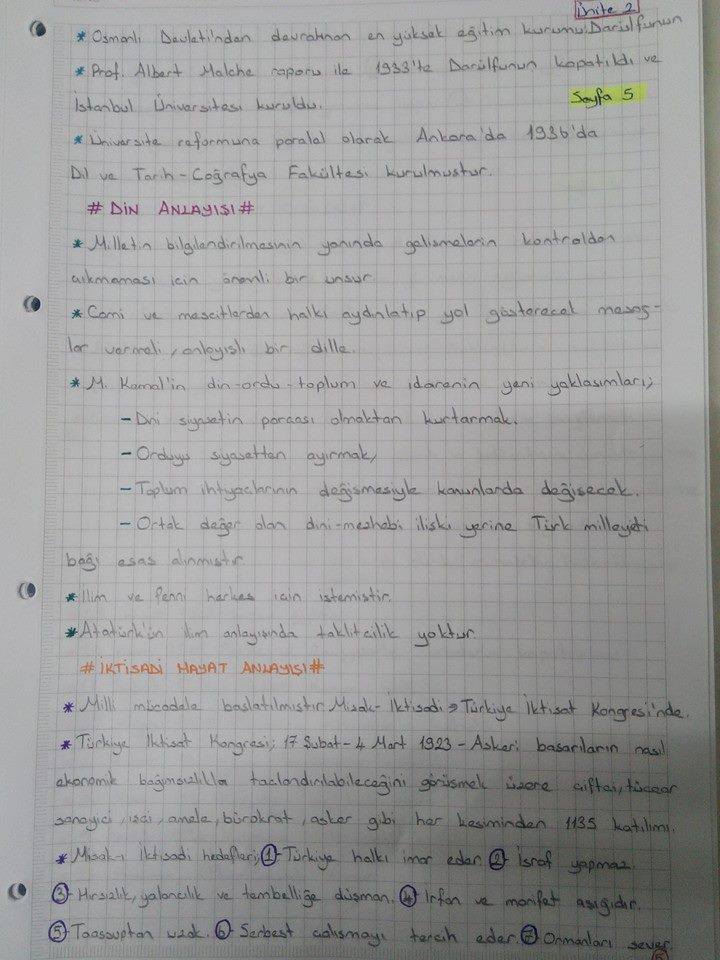 Ünite 2
* Osmanlı Devleti'nden devralınan en yüksek eğitim kurumu: Darülfunun
* Prof. Albert Malche raporu ile 1933'te Darülfunun kapatıldı ve
İstanbul Üniversitesi kuruldu.
Sayfa 5
* Üniversite reformuna paralel olarak Ankara'da 1936'da
Dil ve Tarih-Coğrafya Fakültesi kurulmuştur.
# DİN ANLAYIŞI #
* Milletin bilgilendirilmesinin yanında gelişmelerin kontrolden
çıkmaması için önemli bir unsur
* Cami ve mescitlerden halkı aydınlatıp yol gösterecek mesaj-
lar vermeli, anlayışlı bir dille.
* M. Kemal'in din-ordu-toplum ve idarenin yeni yaklaşımları;
- Dini siyasetin parçası olmaktan kurtarmak.
- Orduyu siyasetten ayırmak,
- Toplum ihtiyaçlarının değişmesiyle kanunlarda değişecek.
- Ortak değer olan dini-mezhebi ilişki yerine Türk milleyeti
bağı esas alınmıştır.
* İlim ve fenni herkes için istemiştir.
* Atatürk'ün ilim anlayışında taklitçilik yoktur.
# İKTİSADİ HAYAT ANLAYIŞI #
* Milli mücadele başlatılmıştır Misak-ı İktisadi → Türkiye İktisat Kongresi'nde.
* Türkiye İktisat Kongresi; 17 Şubat - 4 Mart 1923 - Askeri başarıların nasıl
ekonomik bağımsızlılla taclandırılabileceğini görüşmek üzere çiftçi, tüccar
sanayici, işçi, amele, bürokrat, asker gibi her kesiminden 1135 katılımı.
* Misak-ı İktisadi hedefleri; ① Türkiye halkı imar eder. ② İsraf yapmaz.
③ Hırsızlık, yalancılık ve tembelliğe düşman. ④ İrfan ve marifet aşığıdır.
⑤ Taassuptan uzak. ⑥ Serbest çalışmayı tercih eder. ⑦ Ormanları sever.